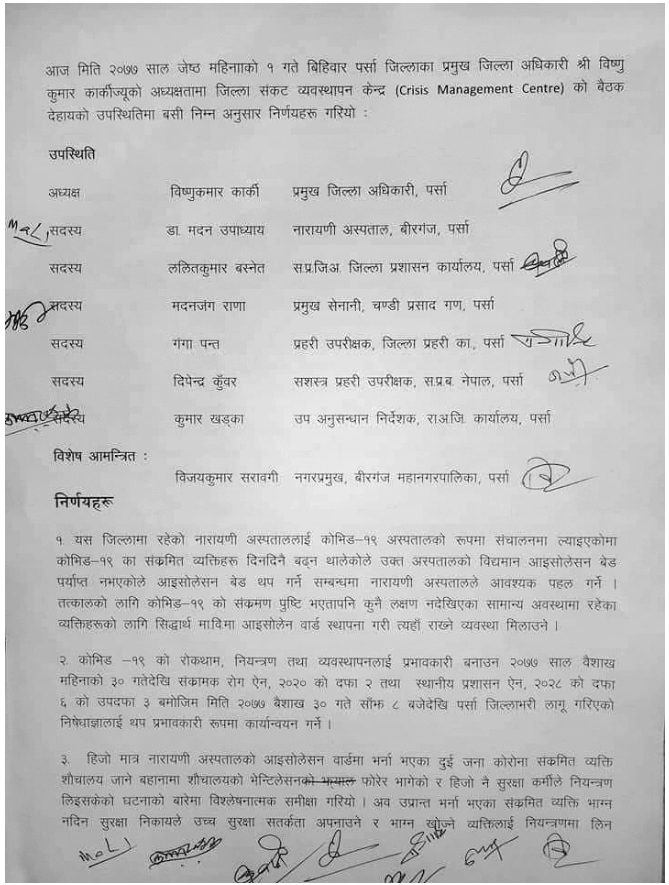 आज मिति २०७७ साल जेष्ठ महिनााको १ गते बिहिवार पर्सा जिल्लाका प्रमुख जिल्ला अधिकारी श्री विष्णु
कुमार कार्कीज्यूको अध्यक्षतामा जिल्ला संकट व्यवस्थापन केन्द्र (Crisis Management Centre) को बैठक
देहायको उपस्थितिमा बसी निम्न अनुसार निर्णयहरू गरियो :
उपस्थिति
अध्यक्ष विष्णुकुमार कार्की प्रमुख जिल्ला अधिकारी, पर्सा
सदस्य डा. मदन उपाध्याय नारायणी अस्पताल, बीरगंज, पर्सा
सदस्य ललितकुमार बस्नेत स.प्र.जि.अ. जिल्ला प्रशासन कार्यालय, पर्सा
सदस्य मदनजंग राणा प्रमुख सेनानी, चण्डी प्रसाद गण, पर्सा
सदस्य गंगा पन्त प्रहरी उपरीक्षक, जिल्ला प्रहरी का., पर्सा
सदस्य दिपेन्द्र कुँवर सशस्त्र प्रहरी उपरीक्षक, स.प्र.ब. नेपाल, पर्सा
सदस्य कुमार खड्का उप अनुसन्धान निर्देशक, रा.अ.जि. कार्यालय, पर्सा
विशेष आमन्त्रित :
विजयकुमार सरावगी नगरप्रमुख, बीरगंज महानगरपालिका, पर्सा
निर्णयहरू
१. यस जिल्लामा रहेको नारायणी अस्पताललाई कोभिड-१९ अस्पतालको रूपमा संचालनमा ल्याइएकोमा
कोभिड-१९ का संक्रमित व्यक्तिहरू दिनदिनै बढ्न थालेकोले उक्त अस्पतालको विद्यमान आइसोलेसन बेड
पर्याप्त नभएकोले आइसोलेसन बेड थप गर्ने सम्बन्धमा नारायणी अस्पतालले आवश्यक पहल गर्ने ।
तत्कालको लागि कोभिड-१९ को संक्रमण पुष्टि भएतापनि कुनै लक्षण नदेखिएका सामान्य अवस्थामा रहेका
व्यक्तिहरूको लागि सिद्धार्थ मा.वि.मा आइसोलेन वार्ड स्थापना गरी त्यहाँ राख्ने व्यवस्था मिलाउने ।
२. कोभिड -१९ को रोकथाम, नियन्त्रण तथा व्यवस्थापनलाई प्रभावकारी बनाउन २०७७ साल वैशाख
महिनाको ३० गतेदेखि संक्रामक रोग ऐन, २०२० को दफा २ तथा स्थानीय प्रशासन ऐन, २०२८ को दफा
६ को उपदफा ३ बमोजिम मिति २०७७ बैशाख ३० गते साँझ ८ बजेदेखि पर्सा जिल्लाभरी लागू गरिएको
निषेधाज्ञालाई थप प्रभावकारी रूपमा कार्यान्वयन गर्ने ।
३. हिजो मात्र नारायणी अस्पतालको आइसोलेसन वार्डमा भर्ना भएका दुई जना कोरोना संक्रमित व्यक्ति
शौचालय जाने बहानामा शौचालयको भेन्टिलेसनको झ्याल फोरेर भागेको र हिजो नै सुरक्षा कर्मीले नियन्त्रण
लिइसकेको घटनाको बारेमा विश्लेषनात्मक समीक्षा गरियो । अव उप्रान्त भर्ना भएका संक्रमित व्यक्ति भाग्न
नदिन सुरक्षा निकायले उच्च सुरक्षा सतर्कता अपनाउने र भाग्न खोज्ने व्यक्तिलाई नियन्त्रणमा लिन